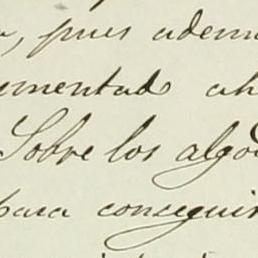 , pues adem
mentad ah
Sobre los algo
para conseguir